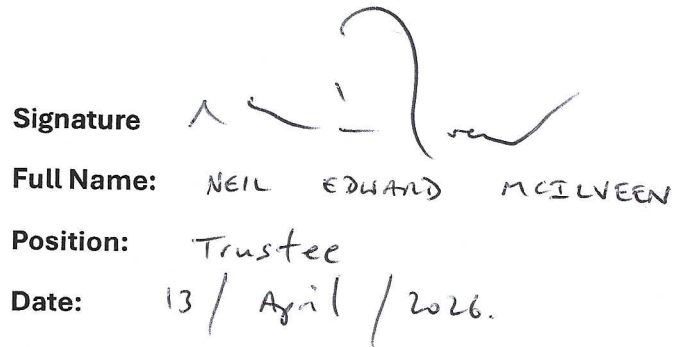 Signature
Full Name: NEIL EDWARD MCILVEEN
Position: Trustee
Date: 13 / April / 2026.